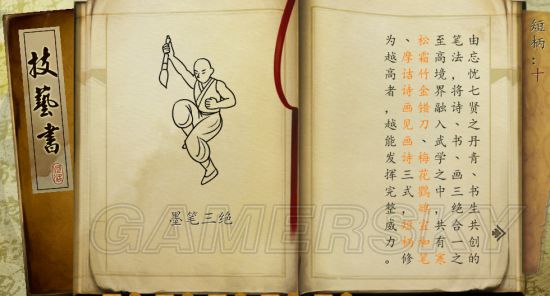 技藝書
墨笔三绝
短柄:十
由忘忧七贤之丹青、书生共创的
笔法,将诗、书、画三绝合一之
至高境界融入武学之中,共有寒
松霜竹金错刀、梅花鹦鹉宣和笔
、摩诘诗画见画诗三式,短柄修
为越高者,越能发挥完整威力。
GAMERSKY